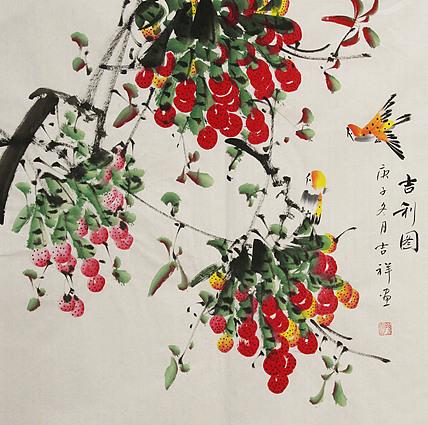 吉利图
庚子冬月吉祥画